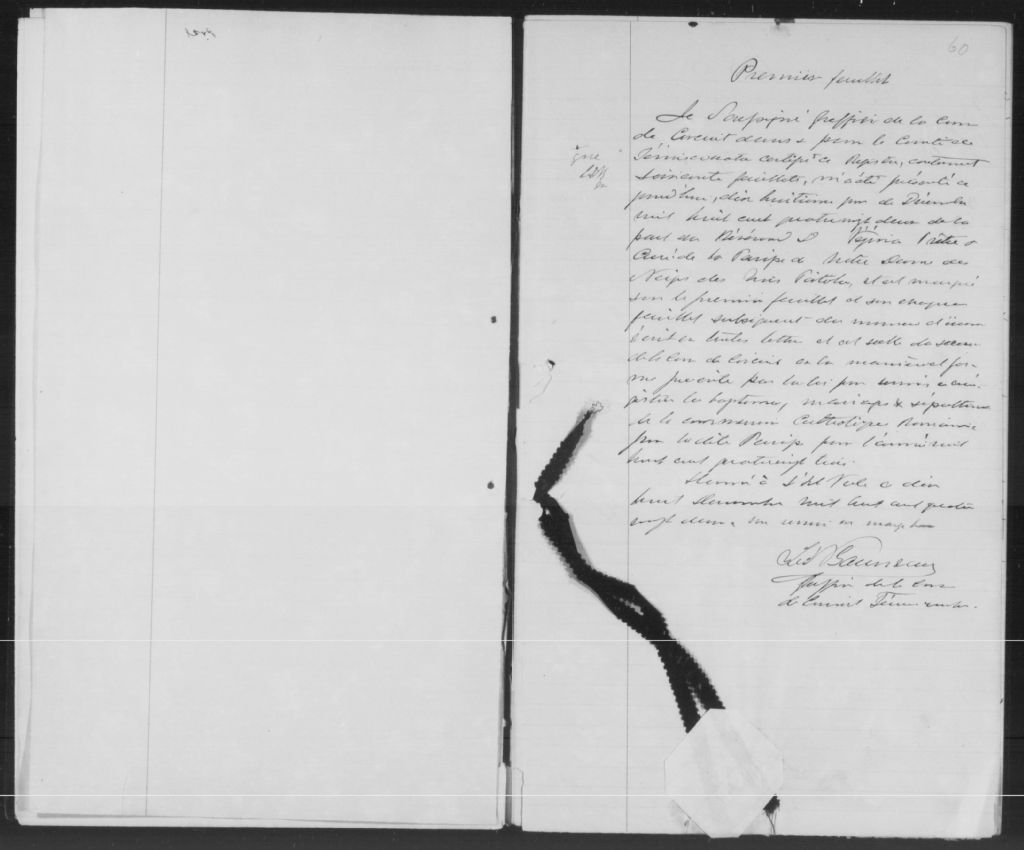 60
Premier feuillet
Je Soussigné Greffier de la Cour
de Circuit dans & pour le Comté de
Témiscouata certifie ce Régistre, contenant
Soixante feuillets, m'a été présenté ce
jourd'hui, dix huitième jour de Décembre
mil huit cent quatrevingt deux de la
part du Révérend D Vézina Prêtre &
Curé de la Paroisse de Notre Dame des
Neiges des Trois Pistoles, et est marqué
sur le premier feuillet et sur chaque
feuillet subséquent du numero d'icelui
écrit en toutes lettres et est scellé du sceau
de la Cour de Circuit en la manière et for-
me prescrite par la loi pour servir à enré-
gistrer les baptêmes, mariages & sépultures
de la communion Catholique Romaine
pour la dite Paroisse pour l'année mil
huit cent quatrevingt trois.
Donné à ce dix
huit Décembre mil huit cent quatre
vingt deux, un renvoi en marge bon
Greffier de la Cour
de Circuit Témiscouata.